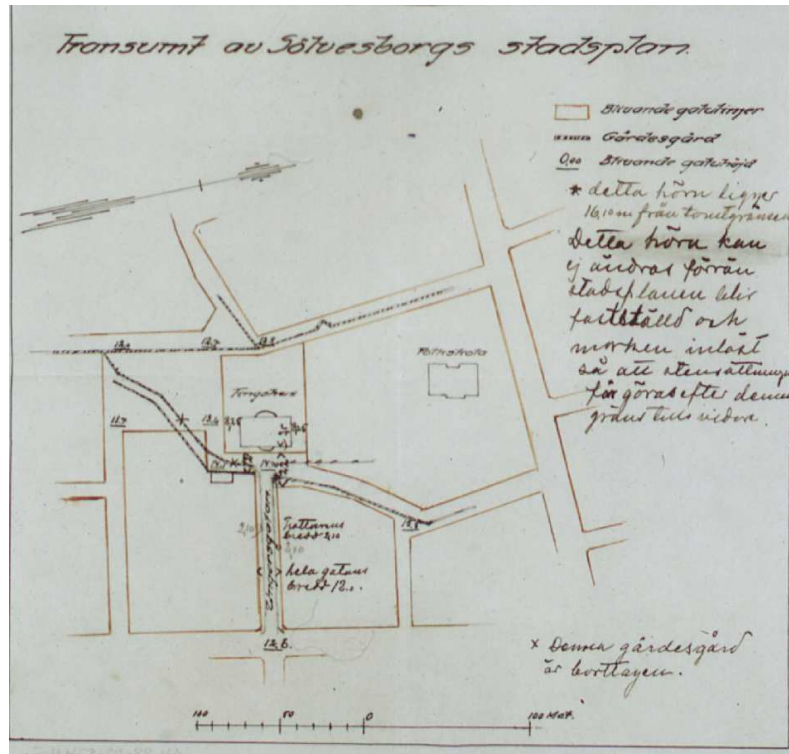 Transumt av Sölvesborgs stadsplan.
Blivande gatulinjer
Gärdesgård
0,00 Blivande gatuhöjd
* detta hörn ligger
16,10 m från tomtgränsen
Detta hörn kan
ej ändras förrän
stadsplanen blir
fastställd och
marken inlöst
så att stensättningen
får göras efter denna
gräns tills vidare.
Folkskola
Tingshus
Trottoirens
bredd 2,10
2,10
2,10
hela gatans
bredd 12.0
12.6.
× Denna gärdesgård
är borttagen.
100 50 0 100 Met.